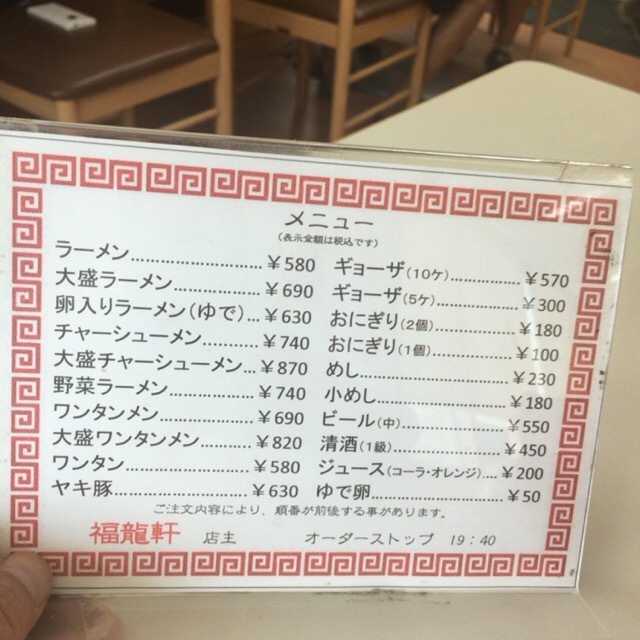 メニュー
(表示金額は税込です)
ラーメン……………………￥580
大盛ラーメン………………￥690
卵入りラーメン(ゆで)…￥630
チャーシューメン…………￥740
大盛チャーシューメン…￥870
野菜ラーメン………………￥740
ワンタンメン………………￥690
大盛ワンタンメン…………￥820
ワンタン……………………￥580
ヤキ豚………………………￥630
ギョーザ(10ケ)……………￥570
ギョーザ(5ケ)……………￥300
おにぎり(2個)……………￥180
おにぎり(1個)……………￥100
めし…………………………￥230
小めし………………………￥180
ビール(中)…………………￥550
清酒(1級)…………………￥450
ジュース(コーラ・オレンジ)…￥200
ゆで卵………………………￥50
ご注文内容により、順番が前後する事があります。
福龍軒 店主 オーダーストップ 19:40